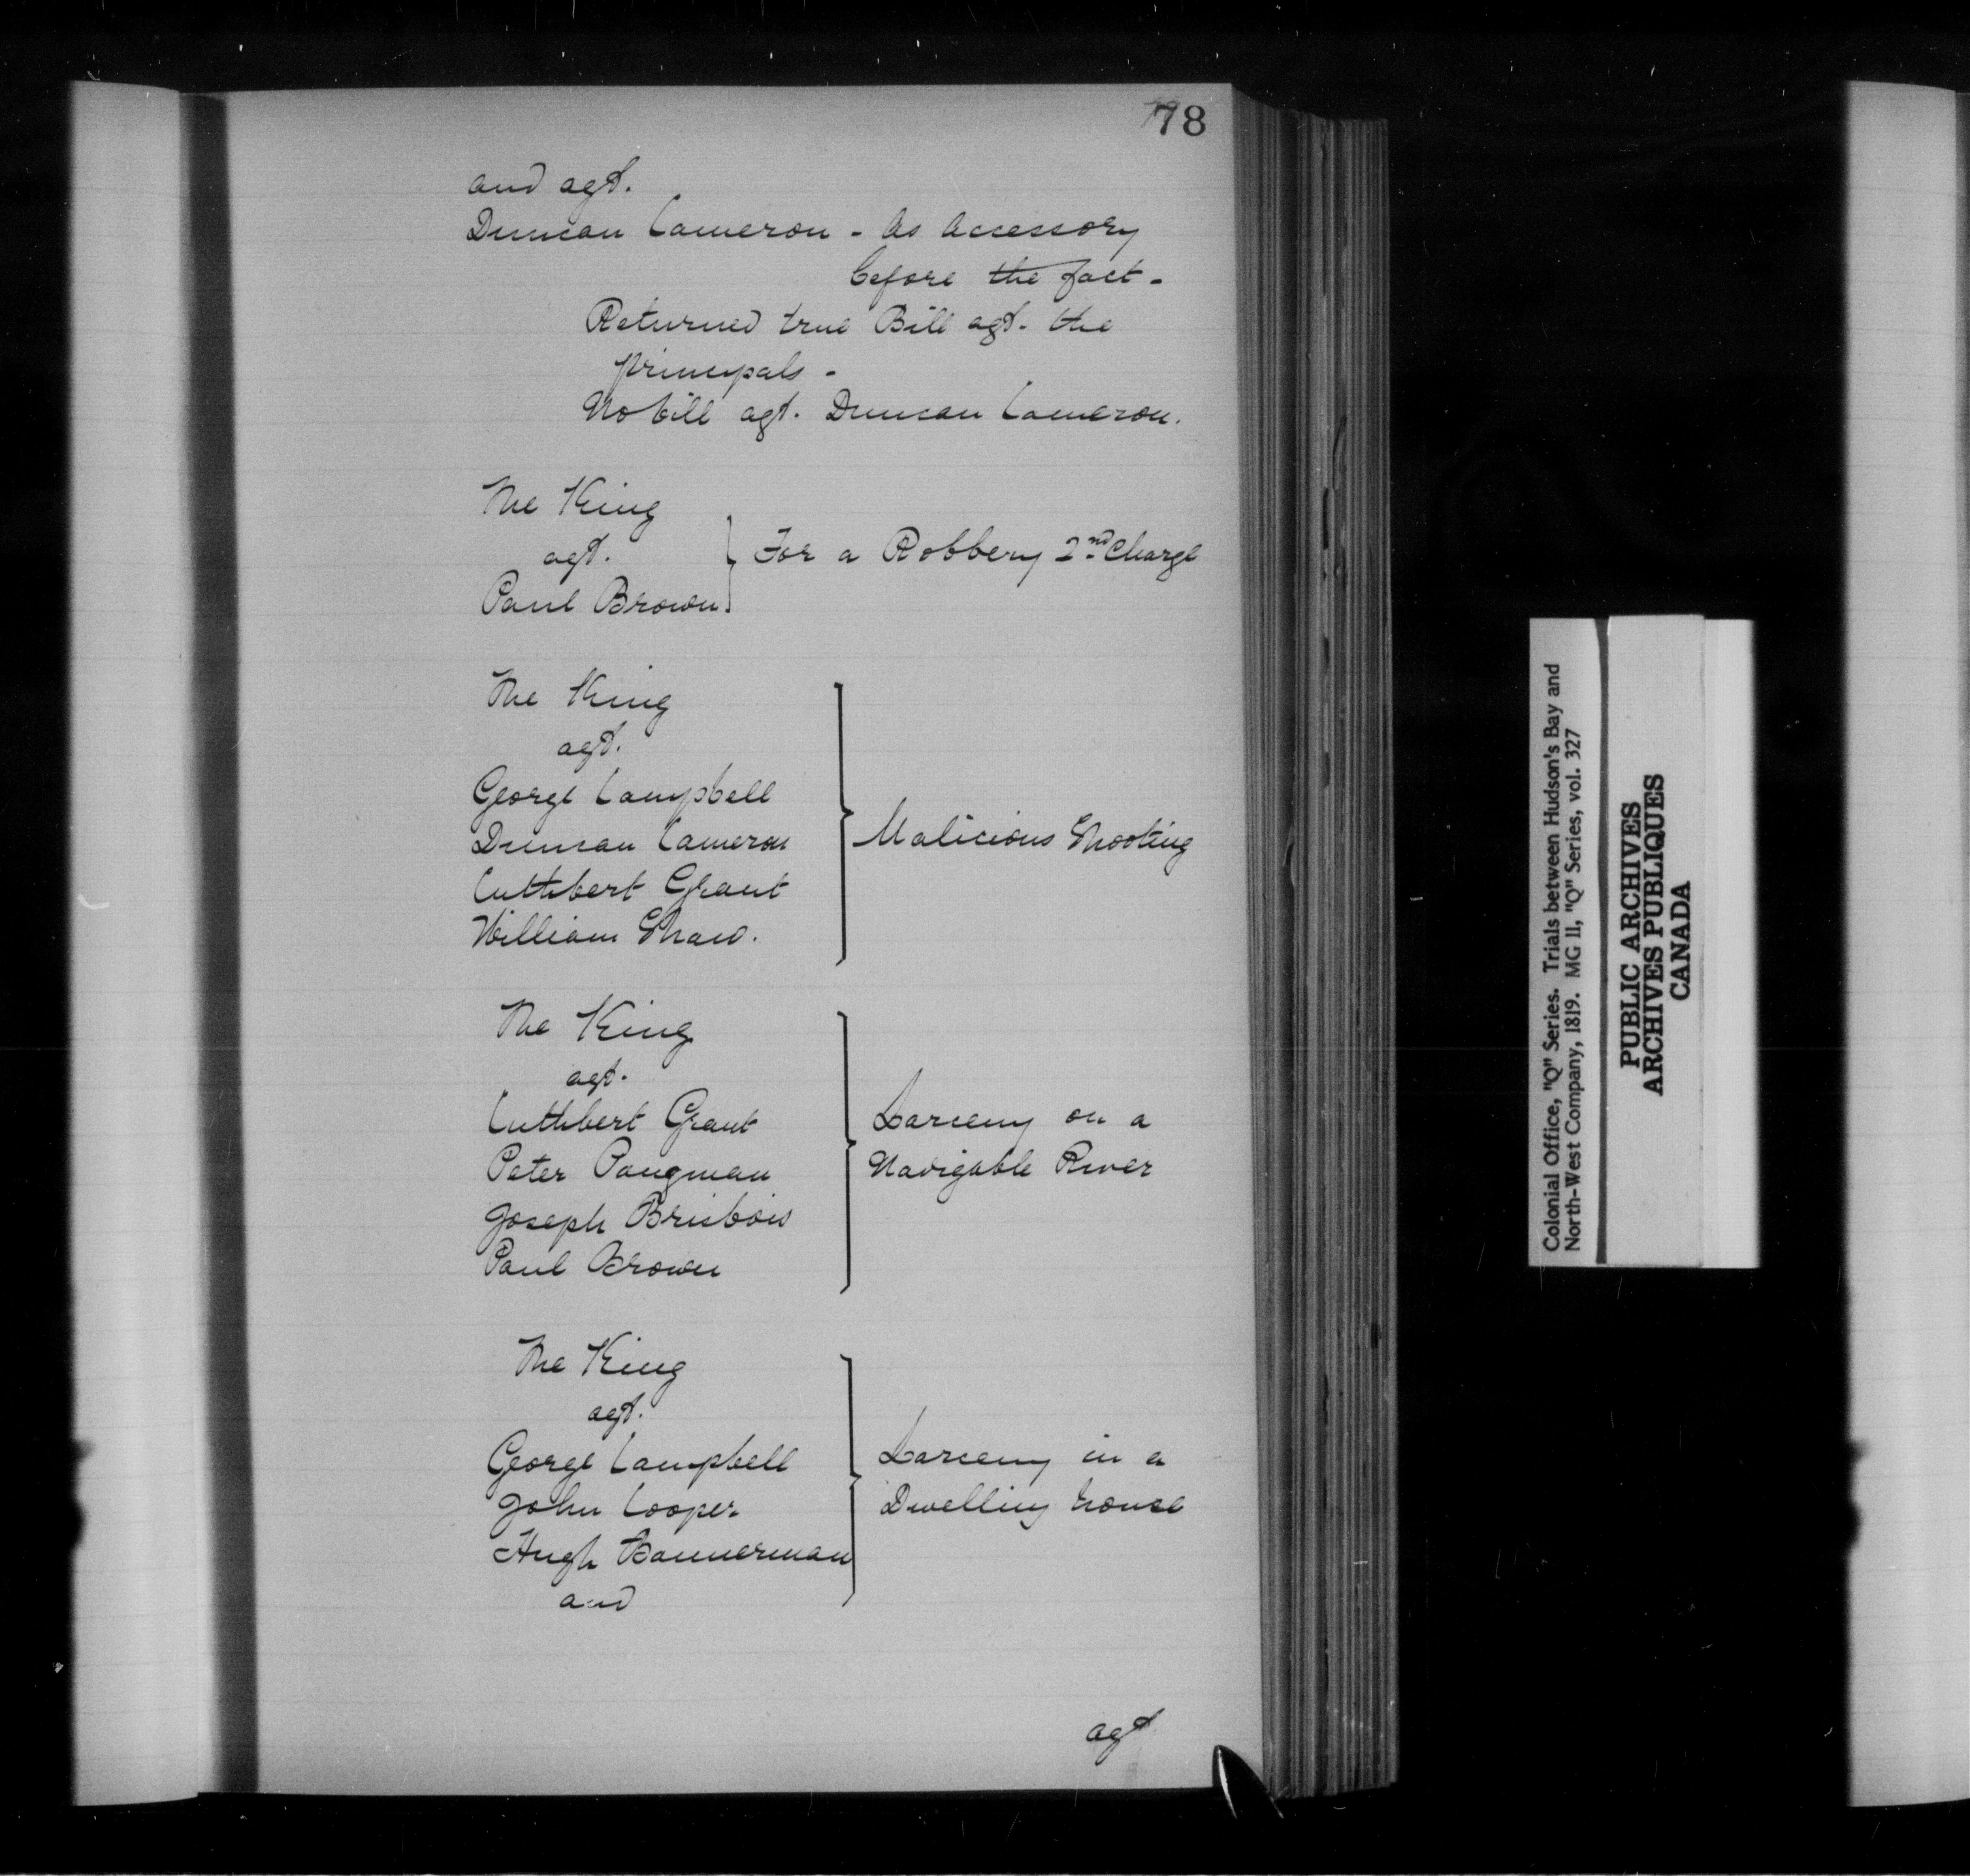 78
and agt.
Duncan Cameron - As Accessory
before the fact -
Returned true Bill agt. the
principals -
No bill agt. Duncan Cameron.
The King
agt.
Paul Brown
For a Robbery 2nd Charge
The King
agt.
George Campbell
Duncan Cameron
Cuthbert Grant
William Shaw.
Malicious Shooting
The King
agt.
Cuthbert Grant
Peter Pangman
Joseph Brisbois
Paul Brown
Larceny on a
Navigable River
The King
agt.
George Campbell
John Cooper
Hugh Bannerman
and
Larceny in a
Dwelling house
agt
Colonial Office, "Q" Series. Trials between Hudson's Bay and
North-West Company, 1819. MG 11, "Q" Series, vol. 327
PUBLIC ARCHIVES
ARCHIVES PUBLIQUES
CANADA